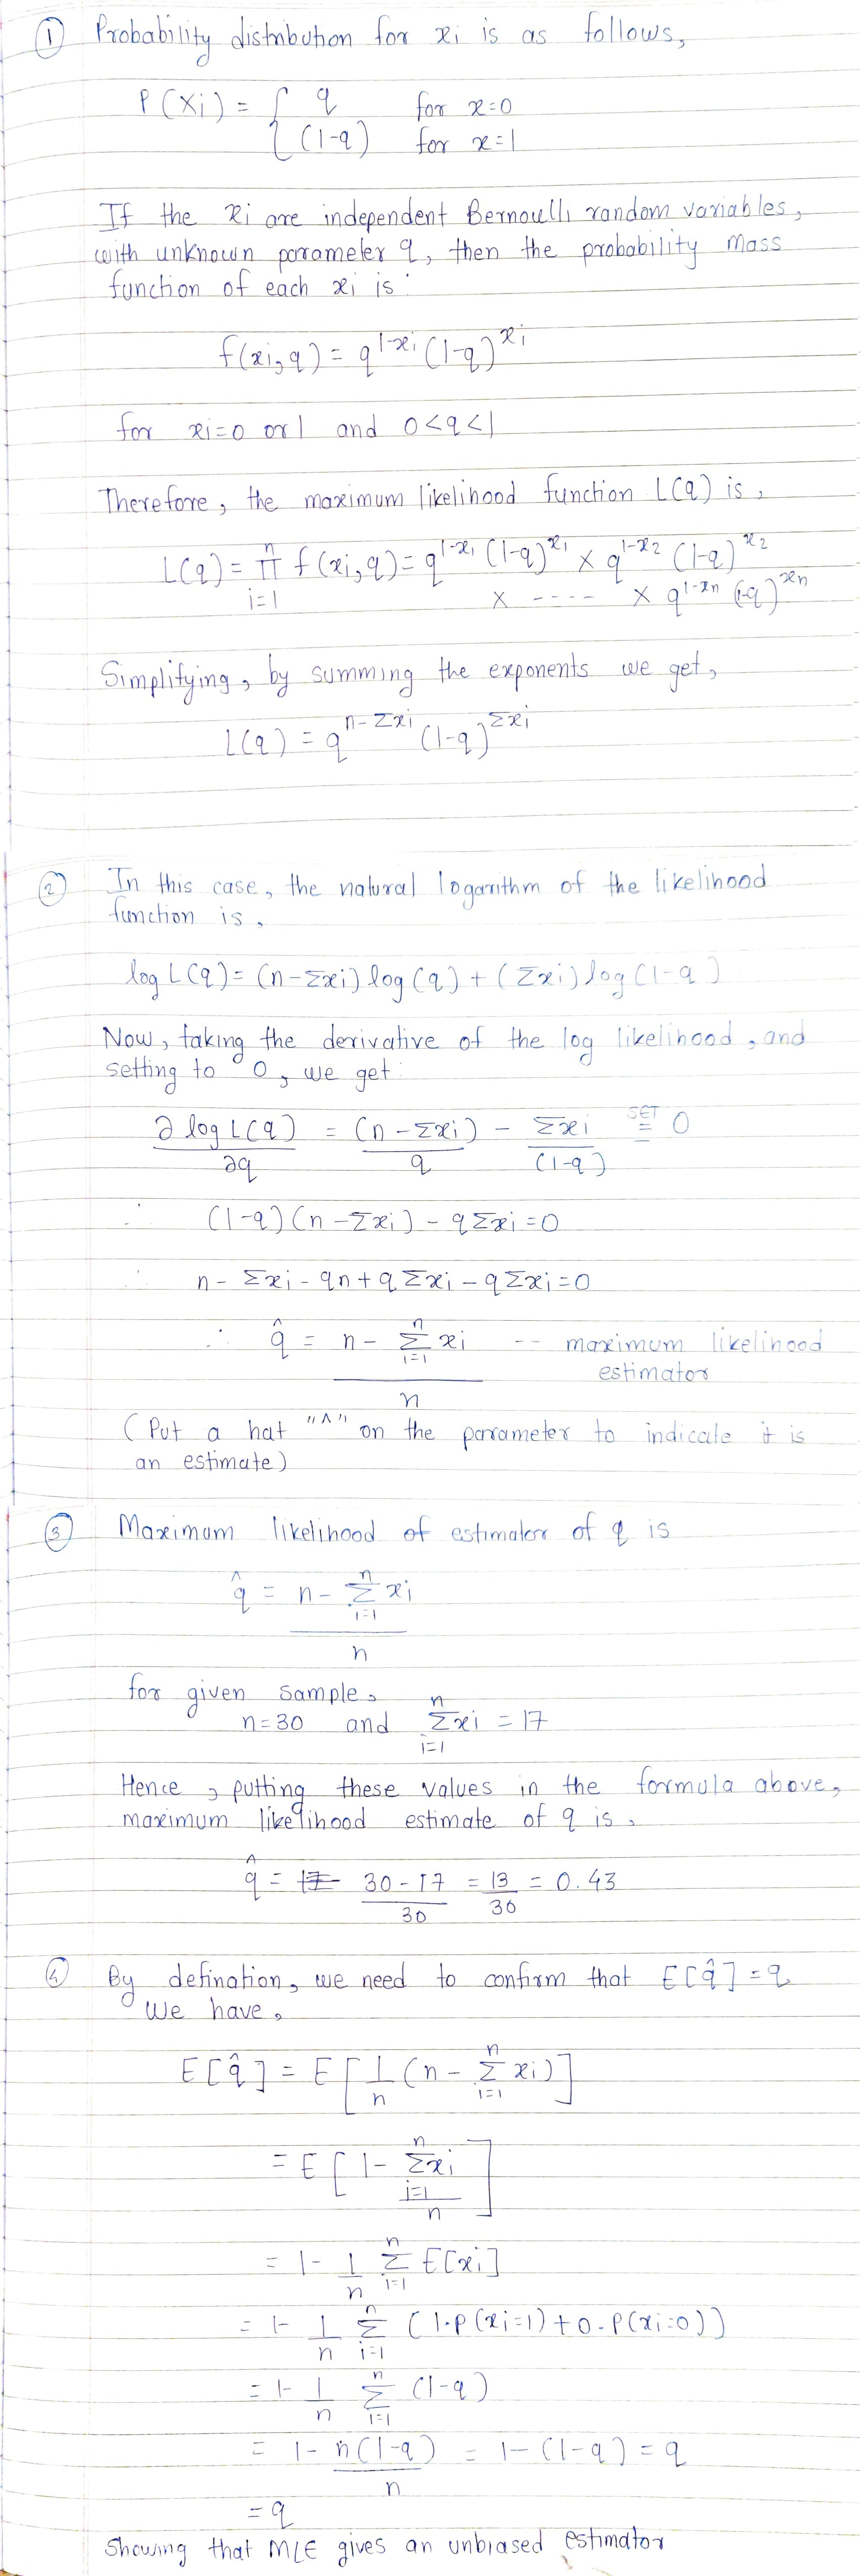 ① Probability distribution for xi is as follows,
P(Xi) = { q for x=0
(1-q) for x=1
If the xi are independent Bernoulli random variables,
with unknown parameter q, then the probability mass
function of each xi is:
f(xi, q) = q^(1-xi) (1-q)^xi
for xi=0 or 1 and 0<q<1
Therefore, the maximum likelihood function L(q) is,
L(q) = ∏_{i=1}^{n} f(xi, q) = q^(1-x1) (1-q)^x1 × q^(1-x2) (1-q)^x2
× ---- × q^(1-xn) (1-q)^xn
Simplifying, by summing the exponents we get,
L(q) = q^(n-Σxi) (1-q)^Σxi
② In this case, the natural logarithm of the likelihood
function is,
log L(q) = (n-Σxi) log(q) + (Σxi) log(1-q)
Now, taking the derivative of the log likelihood, and
setting to 0, we get:
∂ log L(q)/∂q = (n-Σxi)/q - Σxi/(1-q) SET = 0
∴ (1-q)(n-Σxi) - qΣxi = 0
∴ n - Σxi - qn + qΣxi - qΣxi = 0
∴ q̂ = (n - Σ_{i=1}^{n} xi)/n -- maximum likelihood
estimator
(Put a hat "^" on the parameter to indicate it is
an estimate)
③ Maximum likelihood of estimator of q is
q̂ = (n - Σ_{i=1}^{n} xi)/n
for given sample,
n=30 and Σ_{i=1}^{n} xi = 17
Hence, putting these values in the formula above,
maximum likelihood estimate of q is,
q̂ = (30-17)/30 = 13/30 = 0.43
④ By defination, we need to confirm that E[q̂] = q
We have,
E[q̂] = E[1/n (n - Σ_{i=1}^{n} xi)]
= E[1 - Σ_{i=1}^{n} xi/n]
= 1 - 1/n Σ_{i=1}^{n} E[xi]
= 1 - 1/n Σ_{i=1}^{n} (1·P(xi=1) + 0·P(xi=0))
= 1 - 1/n Σ_{i=1}^{n} (1-q)
= 1 - n(1-q)/n = 1-(1-q) = q
= q
Showing that MLE gives an unbiased estimator